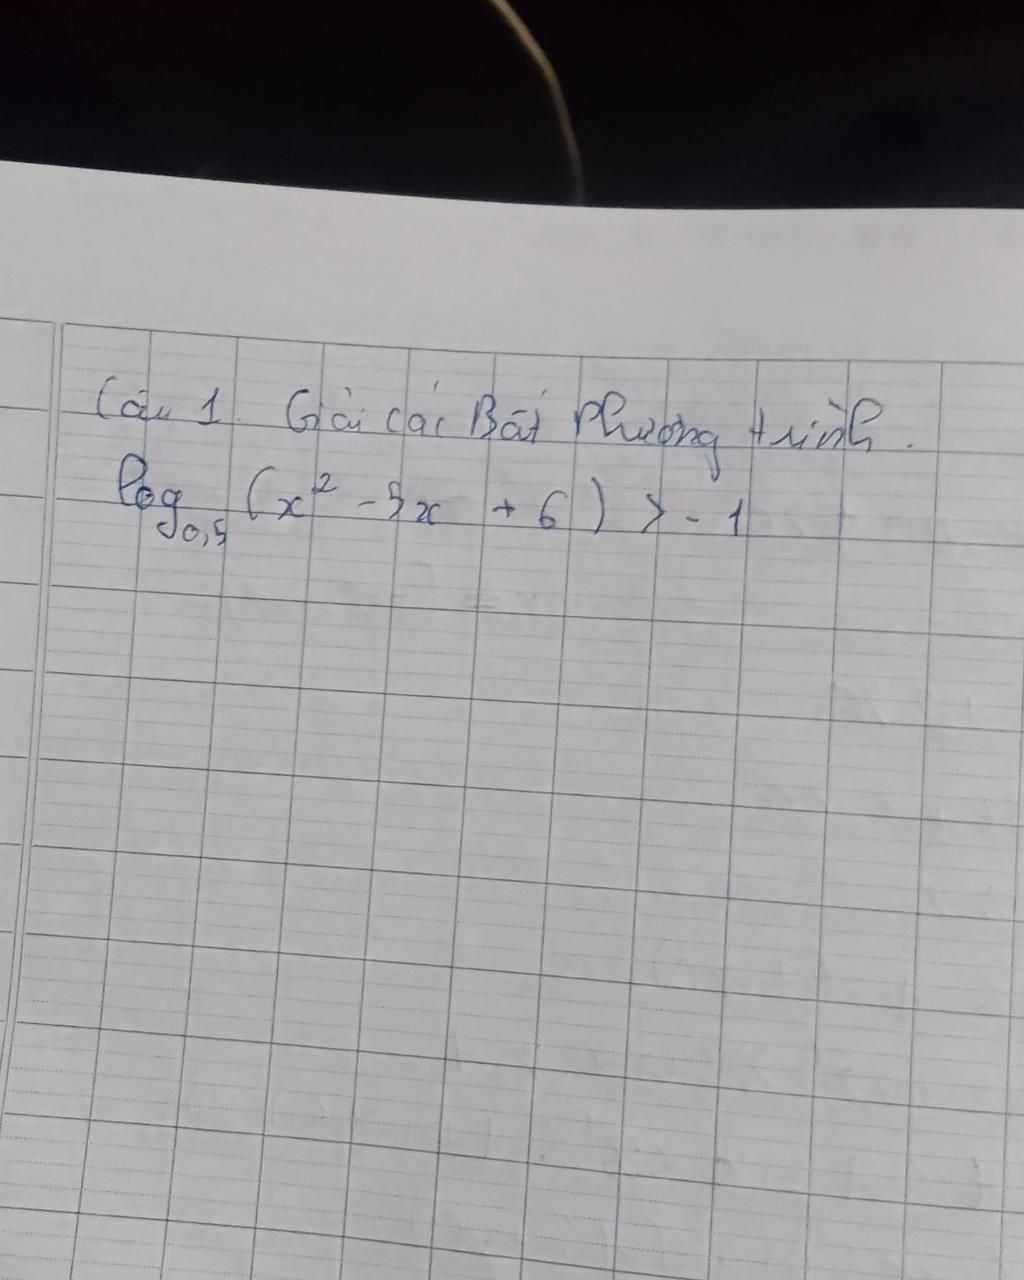 Câu 1. Giải các Bất Phương trình.
log₀,₅ (x² - 5x + 6) > - 1